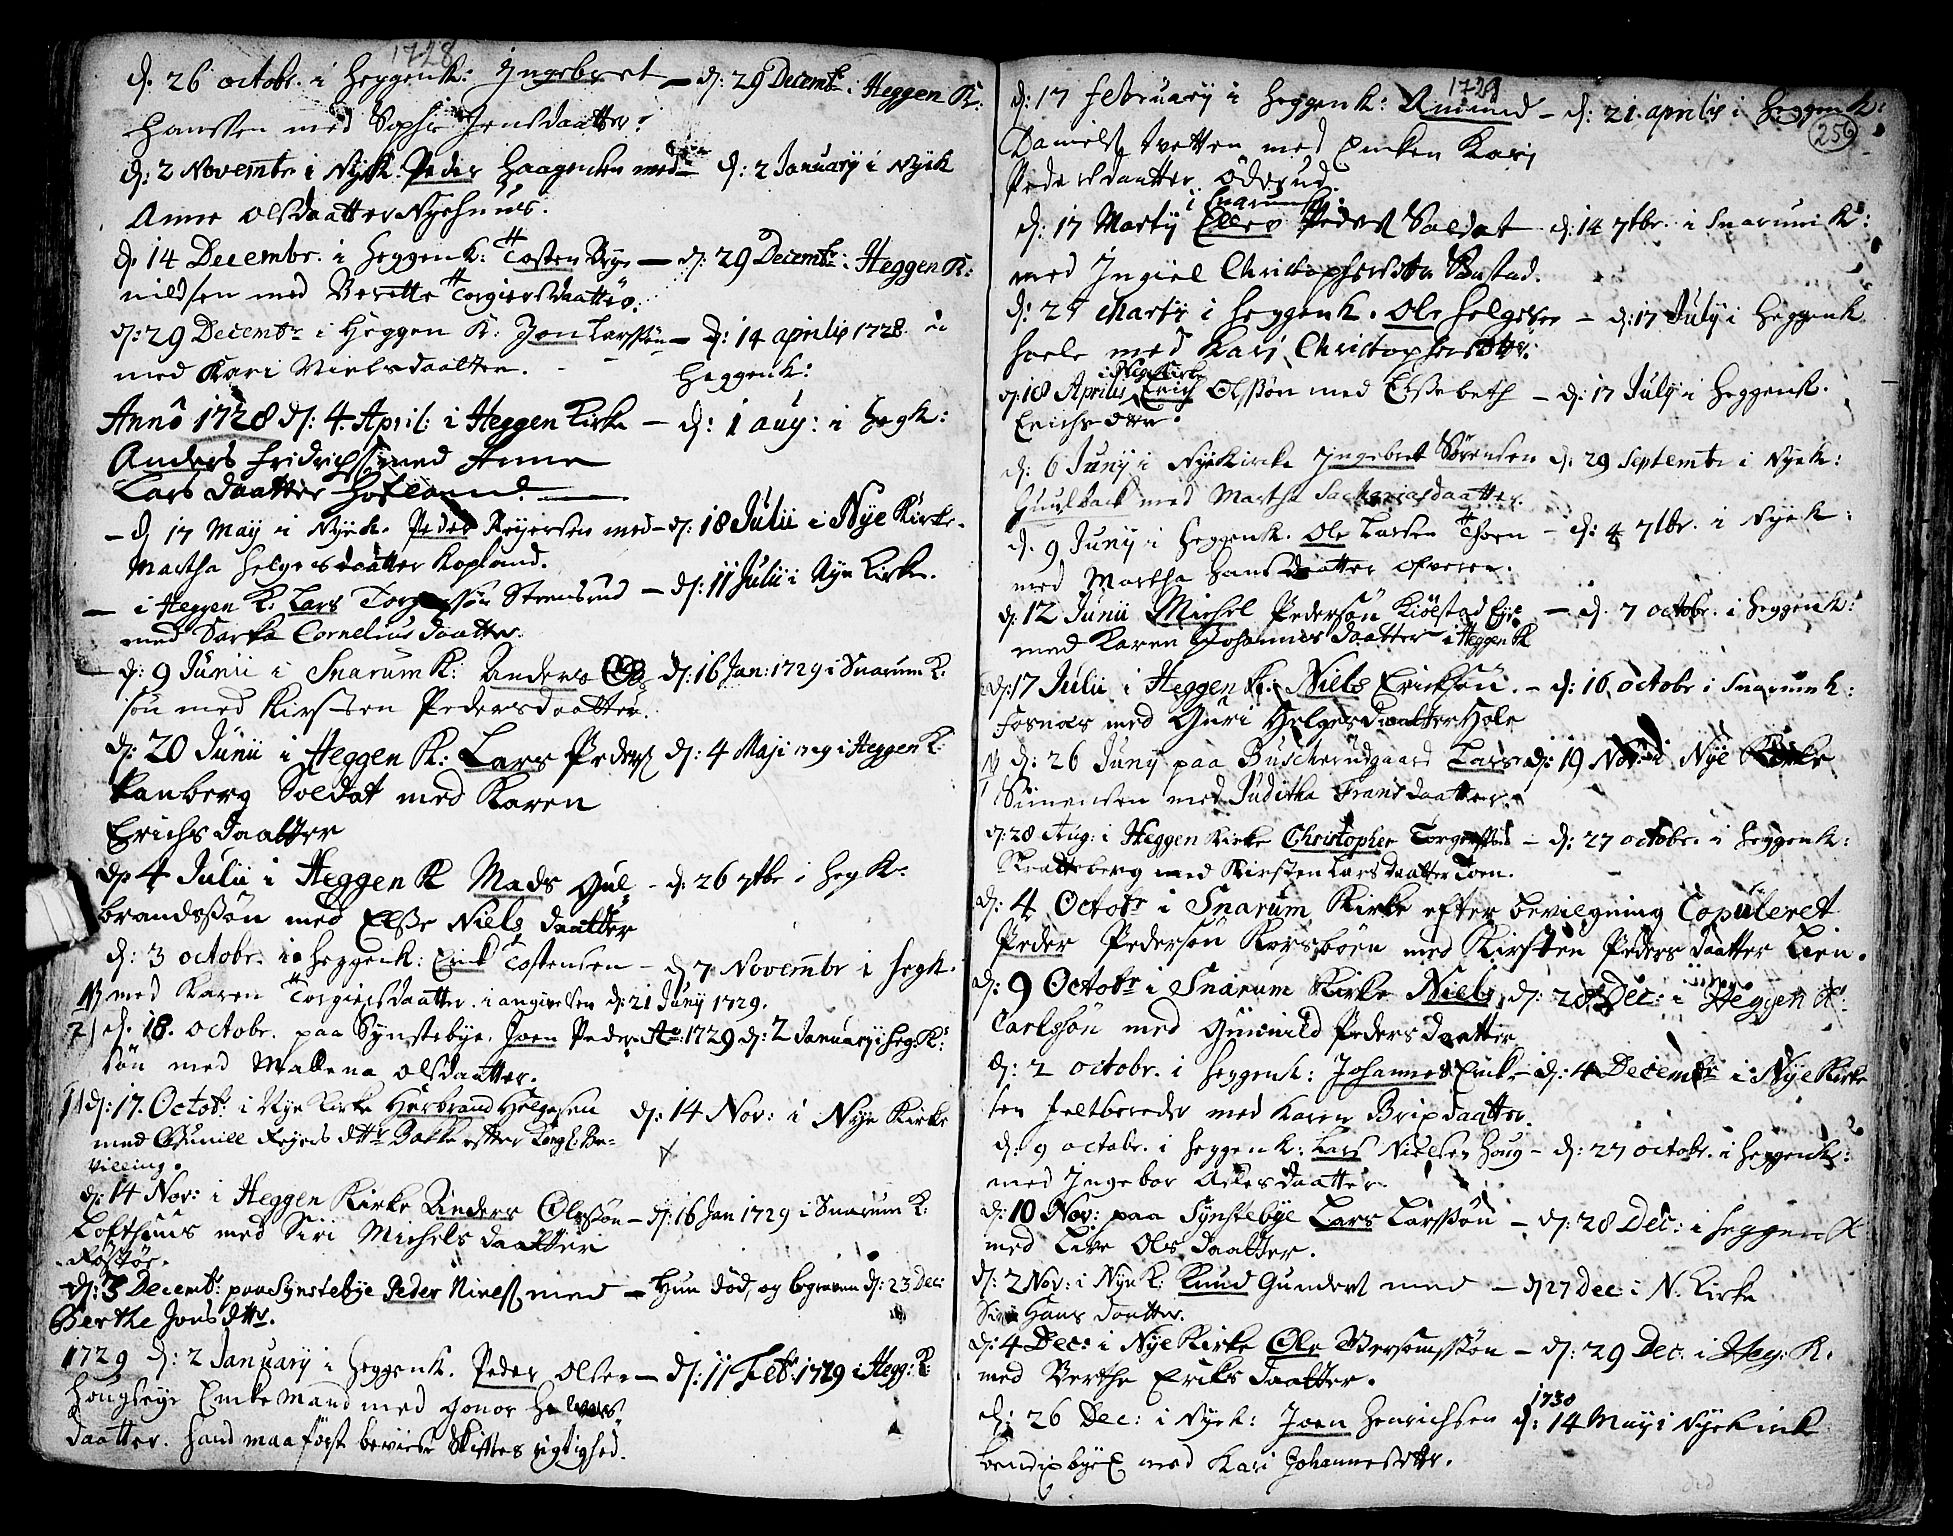 1728
d: 26 octobr. i Heggen K: Ingebret — d: 29 Decembr: i Heggen K:
Hanssen med Sophie Jensdaatter:
d: 2 Novembr i Nyk. Peder Haagensen med — d: 2 January i Nyek
Anne Olsdaatter Nyehuus.
d. 14 Decembr. i Heggen k: Tosten Rye — d: 29 Decembr: i Heggen K:
nildsen med Berette Torgiersdaatter.
d: 29 Decembr i Heggen K: Jon Larssøn — d: 14 aprilis 1728 i
med Kari Nielsdaatter. - Heggenk:
Anno 1728 d: 4. April: i Heggen Kirke — d: 1 aug: i Hegk:
Anders Fridrichss: med Anne
Lars daatter Hofland. —
— d 17 May i Nyek. Peder Reyersen med — d: 18 Julii i Nye Kirke.
Martha Helgersdaatter Kopland.
— i Heggen K: Lars Torgerssøn Strensrud — d: 11 Julii i Nye Kirke.
med Sarha Cornelius daatter.
— d: 9 Junii i Snarum K: Anders Ols d: 16 Jan: 1729 i Snarum K.
søn med Kirsten Pedersdaatter.
d: 20 Junii i Heggen K: Lars Peders d: 4 Maji i Heggen K:
Kanberg Soldat med Karen
Erichsdaatter
d. 4 Julii i Heggen K Mads Gul - d: 26 7tbr i Heg K:
brandssøn med Else Niels daatter
d: 3 octobr. i Heggenk: Erick Tostensen — d 7 Novembr i Hegk.
med Karen Torgiersdaatter. i angivelsen d: 21 Juny 1729.
d. 18. octobr. paa Synstebye. Joen Peder- Ao: 1729 d: 2 January i Heg: K:
søn med Mallena Olsdaatter.
d: 17. Octobr: i Nye Kirke Herbrand Helgesen d: 14 Nov: i Nye Kirke
med Gunill Reyers dttr Bakke efter Kongl: Be-
villing.
d: 14 Nov: i Heggen Kirke Anders Olssøn — d: 16 Jan 1729 i Snarum K:
Lofthuus med Siri Michels daatter
Røstøe.
d: 3 Decembr: paa Synstebye Peder Niels: med — Hun død, og begraven d: 23 Dec:
Berthe Jons dttr.
1729 d: 2 January i Heggenk. Peder Olsen — d: 11 Feb: 1729 i Hegg: K:
Hougseye Enkemand med Gonor Halvors
daatter. Hand maa først beviise Skiftes rigtighed.
1729
259
d: 17 February i Heggenk: Amund — d: 21. aprilis i Heggenk:
Daniels: Tvetten med Encken Karj
Pedersdaatter Ødesrud.
i Snarum K:
d: 17 Martij Elles Peders Soldat — d: 14 7tbr. i Snarum K:
med Ingiel Christophersdttr Bustad.
d: 27 Martij i Heggenk. Ole Helgesen — d: 17 July i Heggenk.
Hoele med Karj Christophersdttr:
i Nye Kirke
d: 18 Aprilis Erich Olssøn med Elssebeth — d: 17 July i Heggenk.
Erichsdttr.
d: 6 Juny i Nye Kirke Ingebret Sørensen d: 29 Septembr i Nyek:
Huulback med Martha Sachariasdaatter.
d. 9 Juny i Heggenk. Ole Larsen Thoen — d: 4 7tbr. i Nyek:
med Martha Hansdaatter Ofveren.
d: 12 Junii Michel Pedersøn Kiølstad Eye — d. 7 octobr. i Heggenk:
med Karen Johannis daatter i Heggen K
d: 17 Julii i Heggen K. Niels Ericksøn. — d: 16 octobr i Snarum k:
Fosnæs med Guri Helgersdaatter Hole
d: 26 Juny paa Buscherudgaard Lars d: 19 Nov: i Nye Kirke
Simensen med Juditha Frandsdaatter.
d: 28 Aug: i Heggen Kirke Christopher Torgerssøn — d: 27 octobr. i Heggenk:
Kratteberg med Kirsten Larsdaatter Toen.
d: 4 Octobr i Snarum Kirke efter bevilgning Copuleret
Peder Pedersøn Korsboen med Kirsten Peders daatter Lien.
d: 9 Octobr i Snarum Kirke Niels d: 28 Dec: i Heggen K:
Carlssøn med Gunnild Pedersdaatter
d: 2 octobr. i Heggenk: Johannes Erick- d: 4 Decembr i Nye Kirke
sen Feltbereder med Karen Bripdaatter.
d: 9 octobr. i Heggenk: Lars Nielsen Houg — d: 27 octobr. i Heggenk:
med Ingebor Askesdaatter
d: 10 Nov: paa Synstebye Lars Larssøn — d: 28 Dec: i Heggen K
med Live Ols daatter.
d: 2 Nov: i Nye K: Knud Gunders: med — d 27 Dec: i N. Kirke
Siri Hans daatter.
d: 4 Dec: i Nye Kirke Ole Versomssøn — d: 29 Dec: i Heg: K:
med Berthe Eriks daatter.
1730
d: 26 Dec: i Nyek: Joen Henrichsen d: 14 May i Nye Kirke
Bendixbye med Kari Johannesdttr.